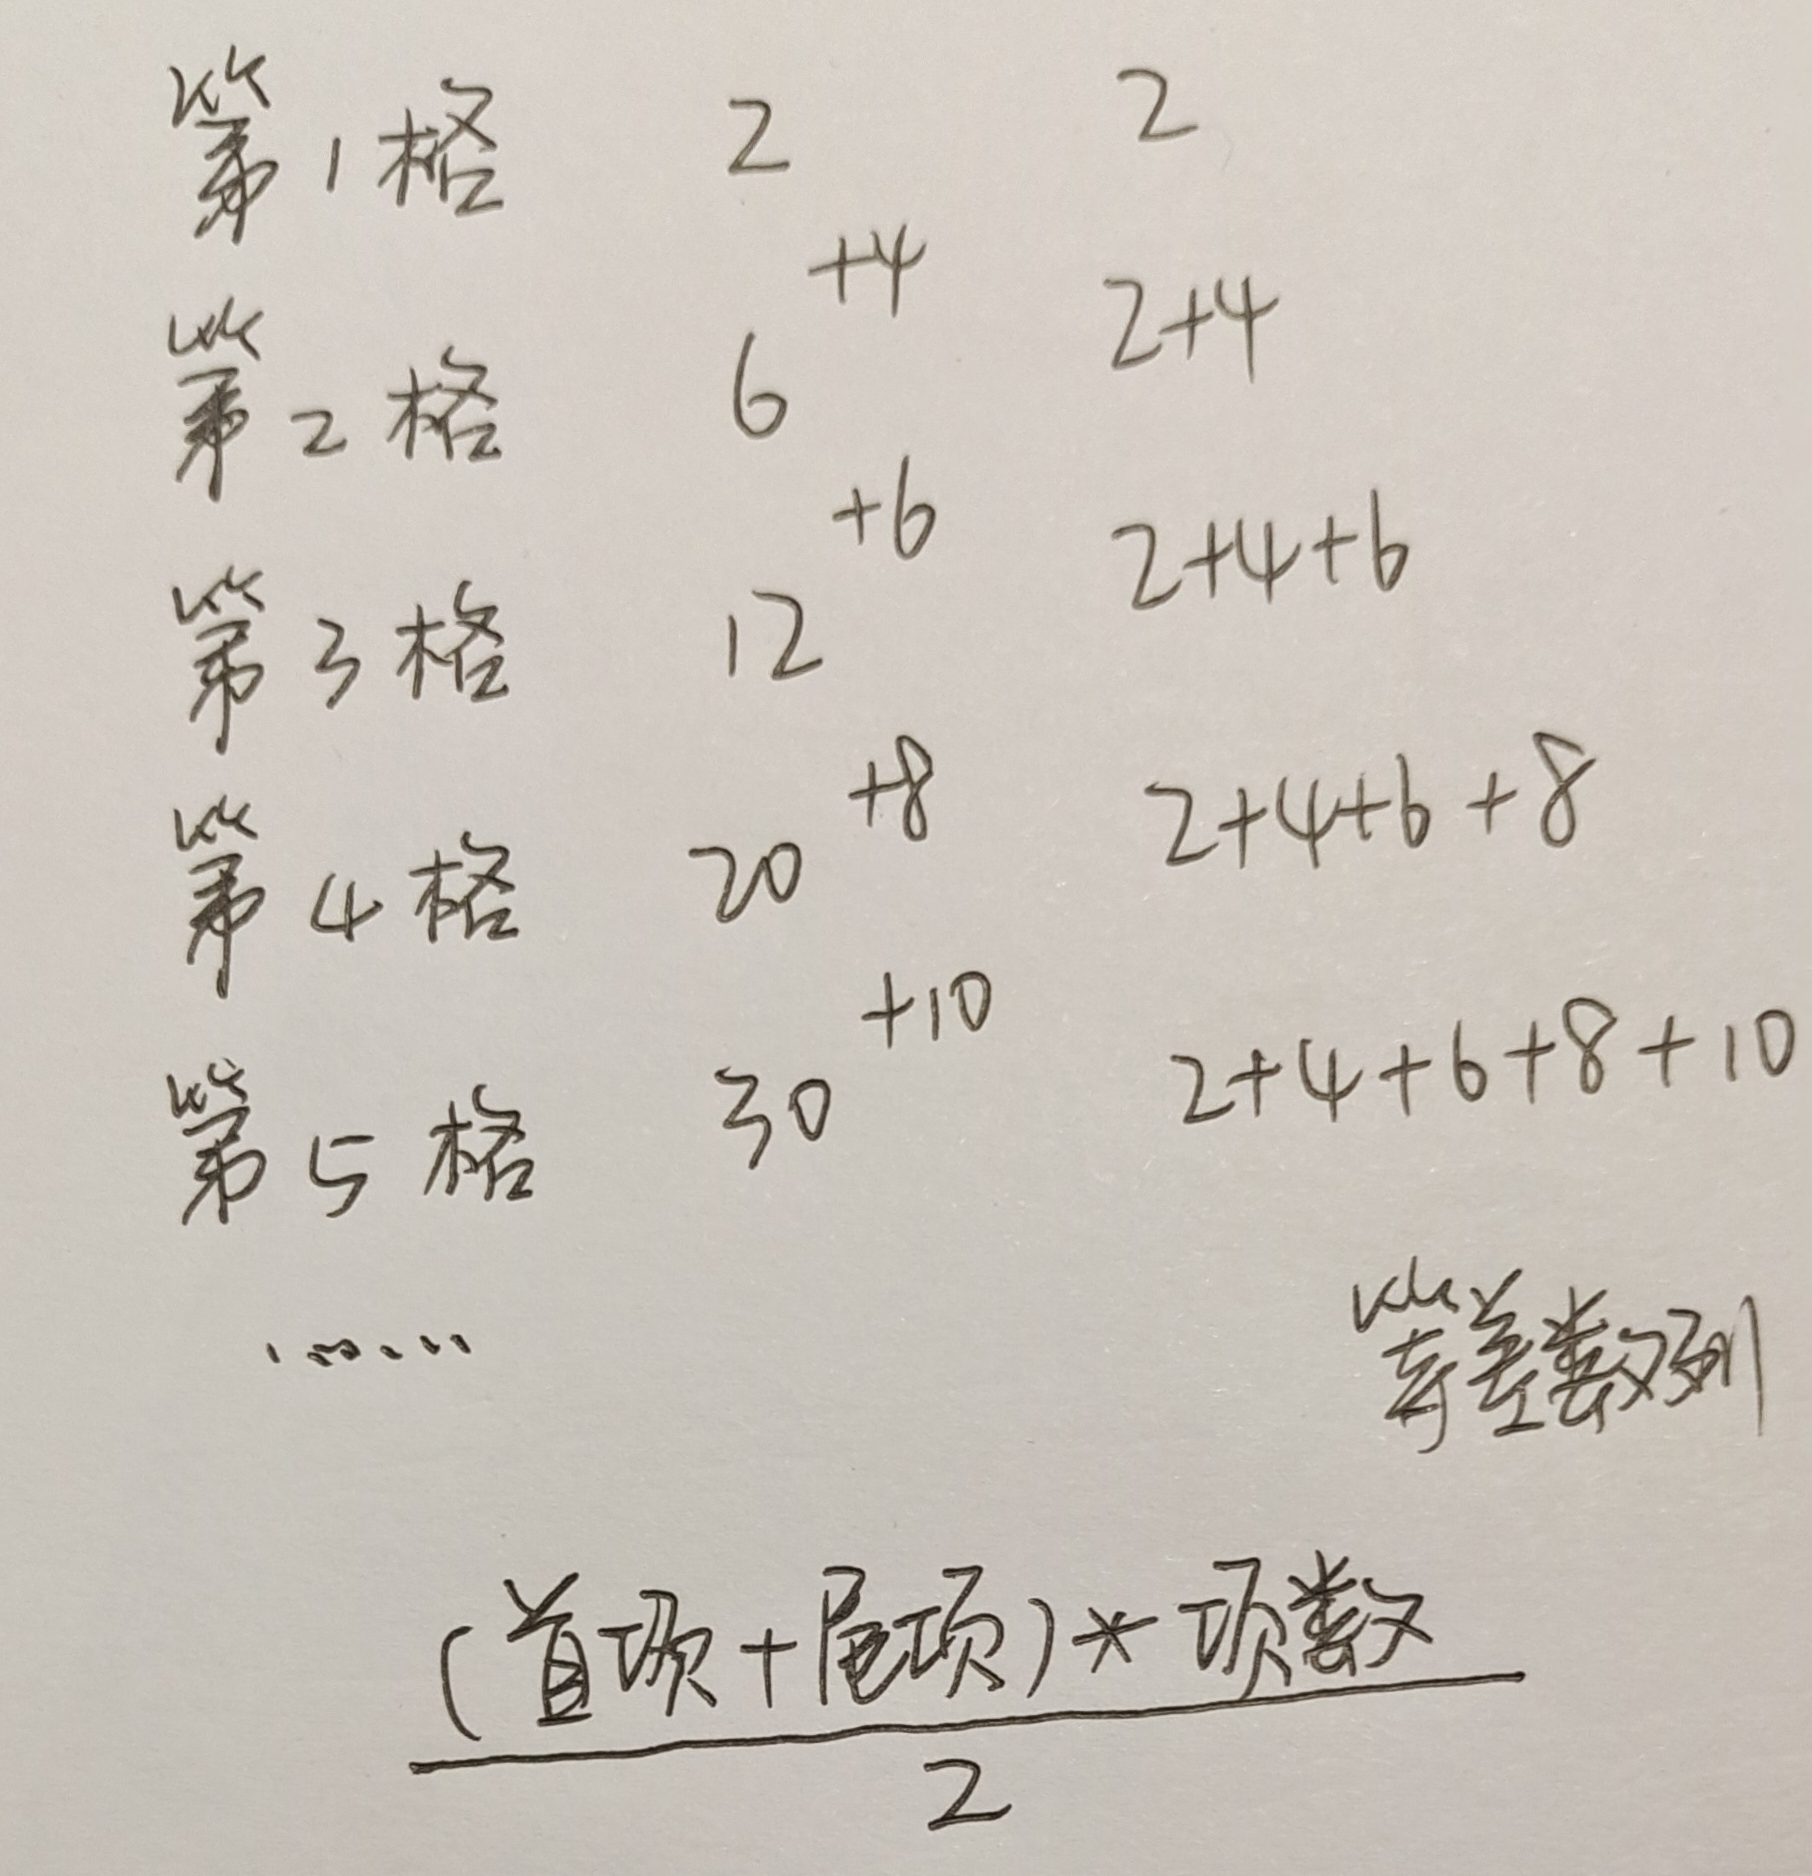 第1格 2 2
+4
第2格 6 2+4
+6
第3格 12 2+4+6
+8
第4格 20 2+4+6+8
+10
第5格 30 2+4+6+8+10
……
等差数列
(首项+尾项)*项数
2